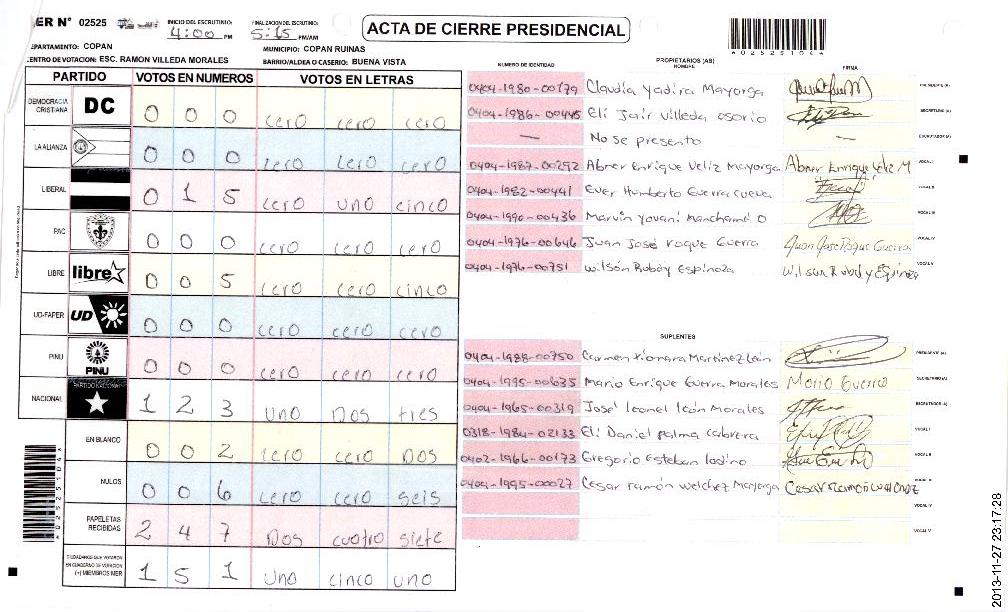 ER N° 02525
INICIO DEL ESCRUTINIO: 4:00 PM
FINALIZACION DEL ESCRUTINIO: 5:15 PM/AM
ACTA DE CIERRE PRESIDENCIAL
A02525104A
EPARTAMENTO: COPAN
MUNICIPIO: COPAN RUINAS
ENTRO DE VOTACION: ESC. RAMON VILLEDA MORALES
BARRIO/ALDEA O CASERIO: BUENA VISTA
PARTIDO VOTOS EN NUMEROS VOTOS EN LETRAS
DEMOCRACIA CRISTIANA DC 0 0 0 cero cero cero
LA ALIANZA 0 0 0 cero cero cero
LIBERAL 0 1 5 cero uno cinco
PAC 0 0 0 cero cero cero
LIBRE libre 0 0 5 cero cero cinco
UD-FAPER UD 0 0 0 cero cero cero
PINU PINU 0 0 0 cero cero cero
NACIONAL PARTIDO NACIONAL 1 2 3 uno Dos tres
EN BLANCO 0 0 2 cero cero Dos
NULOS 0 0 6 cero cero seis
PAPELETAS RECIBIDAS 2 4 7 Dos cuatro siete
CIUDADANOS QUE VOTARON EN CUADERNO DE VOTACION (+) MIEMBROS MER 1 5 1 uno cinco uno
NUMERO DE IDENTIDAD
PROPIETARIOS (AS)
NOMBRE
FIRMA
0404-1980-00179 Claudia Yadira Mayorga PRESIDENTE (A)
0404-1986-00445 Eli Jair Villeda osorio SECRETARIO (A)
— No se presento — ESCRUTADOR (A)
0404-1987-00292 Abner Enrique Veliz Mayorga Abner Enrique Veliz M VOCAL I
0404-1982-00441 Ever Humberto Guerra cueva VOCAL II
0404-1990-00436 Marvin Yovani Manchamé O VOCAL III
0404-1976-00646 Juan José roque Guerra Juan Jose Roque Guerra VOCAL IV
0404-1976-00751 Wilson Ruboy Espinoza VOCAL V
SUPLENTES
0404-1988-00750 Carmen Xiomara Martinez león PRESIDENTE (A)
0404-1995-00635 Mario Enrique Guerra Morales Mario Guerra SECRETARIO (A)
0404-1965-00319 José leonel león Morales ESCRUTADOR (A)
0318-1984-02133 Eli Daniel palma cabrera VOCAL I
0402-1966-00173 Gregorio Esteban ladino VOCAL II
0404-1995-00027 Cesar ramón Welchez Mayorga VOCAL III
VOCAL IV
VOCAL V
A02525104A
2013-11-27 23:17:28